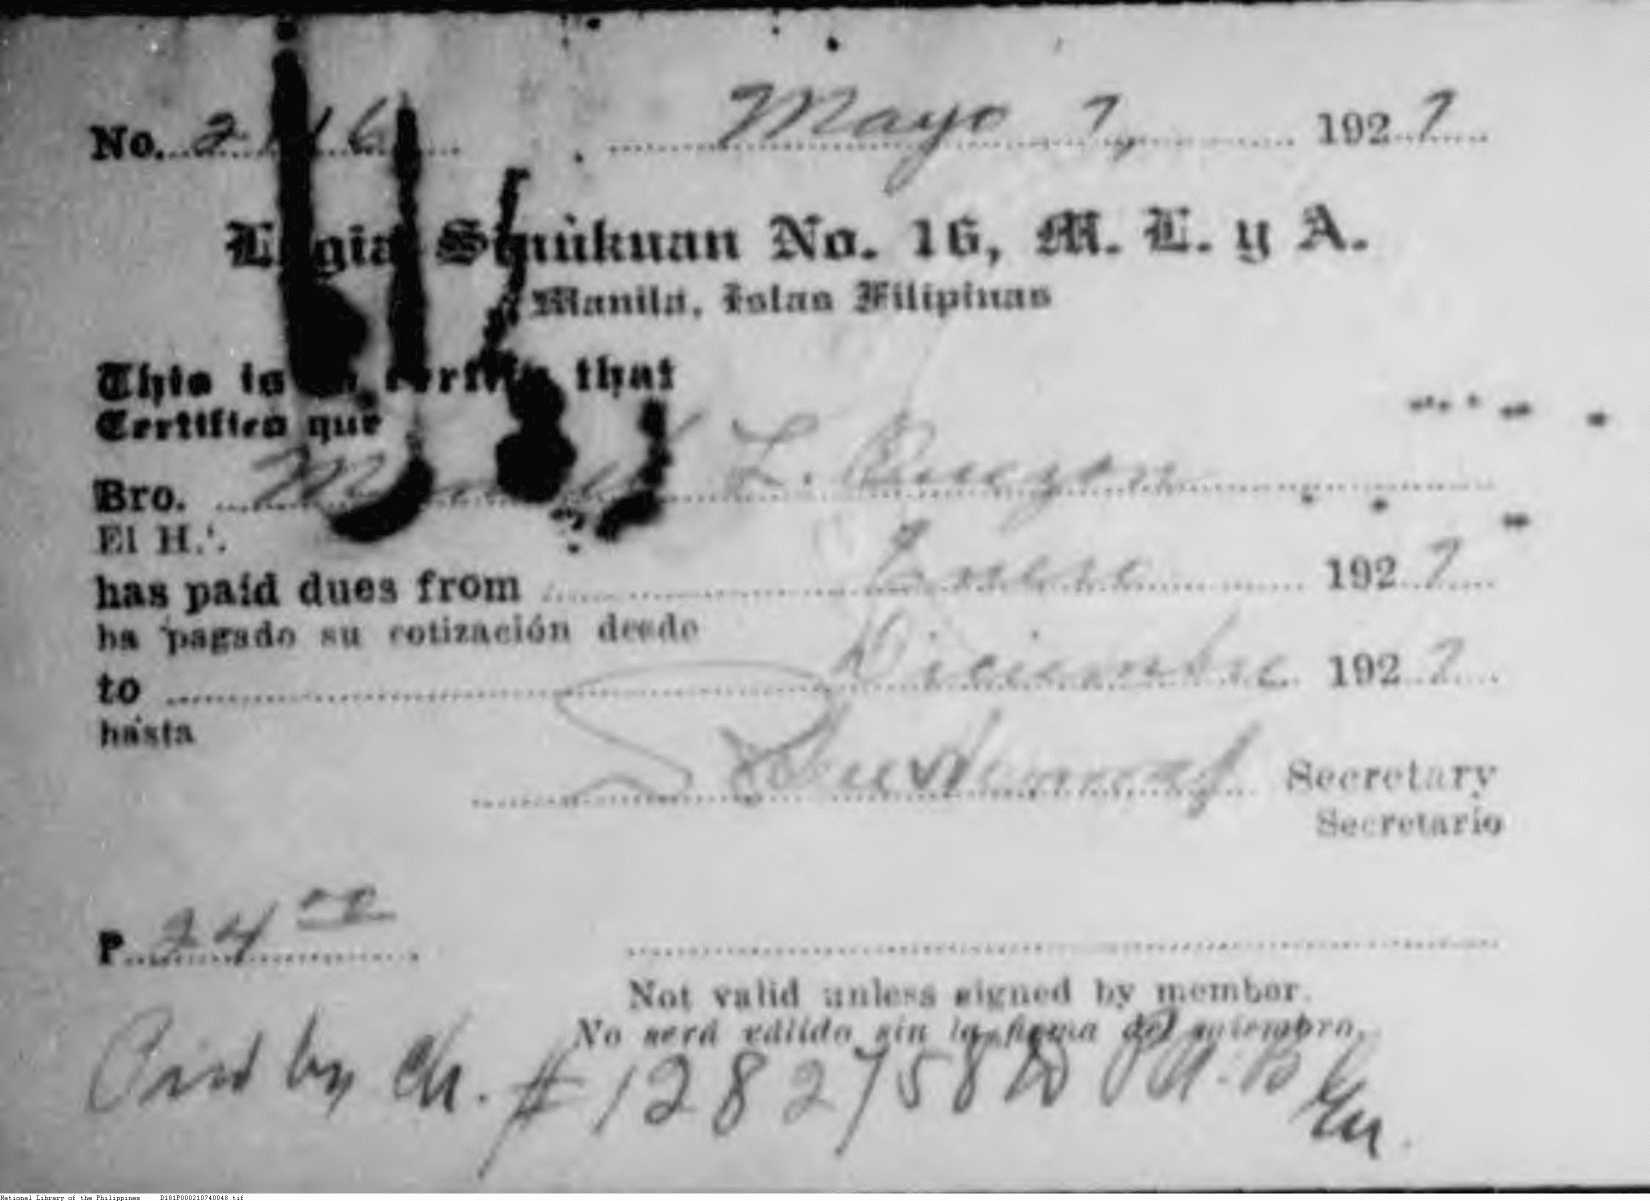 No. 2116 Mayo 7, 1927
Logia Sinukuan No. 16, M. L. y A.
Manila, Islas Filipinas
This is to certify that
Certifico que
Bro. Manuel L. Quezon
El H.·.
has paid dues from Enero 1927
ha pagado su cotización desde
to Diciembre 1927
hasta
Secretary
Secretario
P. 24 00
Not valid unless signed by member.
No será válido sin la firma del miembro.
Paid by Ch. # 1282758
National Library of the Philippines D101P000210740048.tif